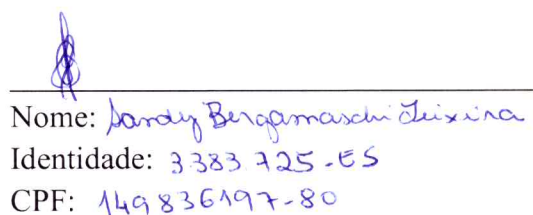 Nome: Sandy Bergamaschi Teixeira
Identidade: 3383725-ES
CPF: 149836197-80